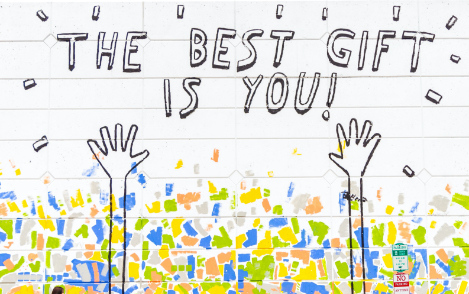 THE BEST GIFT
IS YOU!
NO